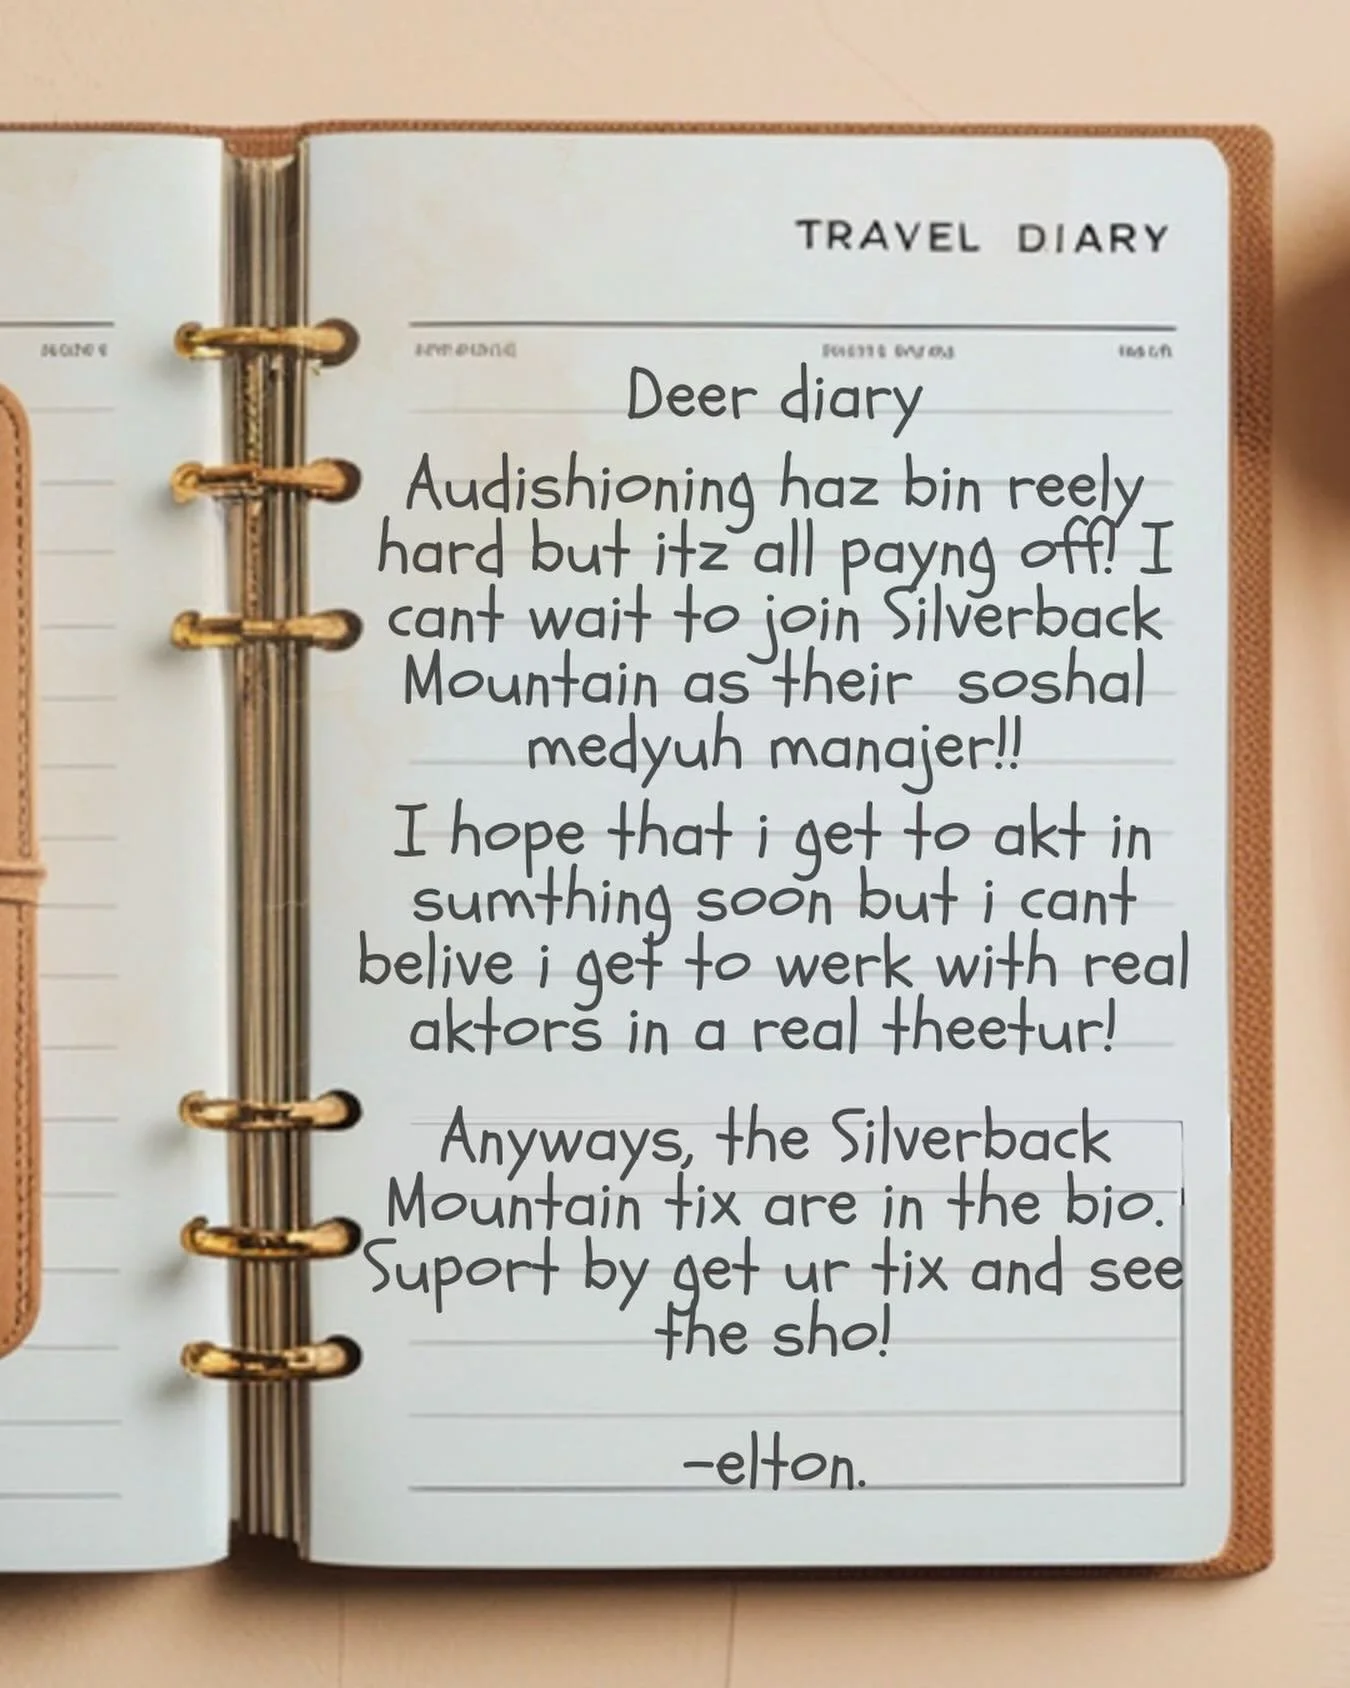 TRAVEL DIARY
Deer diary
Audishioning haz bin reely
hard but itz all payng off! I
cant wait to join Silverback
Mountain as their soshal
medyuh manajer!!
I hope that i get to akt in
sumthing soon but i cant
belive i get to werk with real
aktors in a real theetur!
Anyways, the Silverback
Mountain tix are in the bio.
Suport by get ur tix and see
the sho!
-elton.